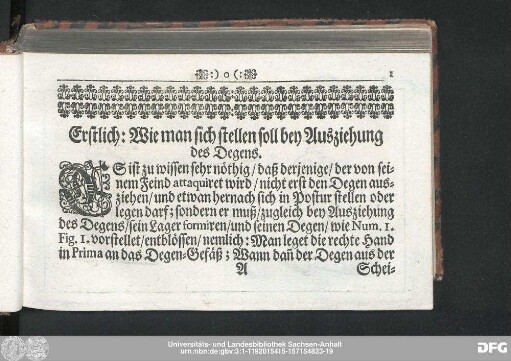 :) o (: 1
Erstlich: Wie man sich stellen soll bey Ausziehung
des Degens.
ES ist zu wissen sehr nöthig / daß derjenige / der von sei-
nem Feind attaquiret wird / nicht erst den Degen aus-
ziehen / und etwan hernach sich in Postur stellen oder
legen darf; sondern er muß / zugleich bey Ausziehung
des Degens / sein Lager formiren / und seinen Degen / wie Num. 1.
Fig. 1. vorstellet / entblössen / nemlich: Man leget die rechte Hand
in Prima an das Degen-Gefäß; Wann dañ der Degen aus der
A Schei-
Universitäts- und Landesbibliothek Sachsen-Anhalt
urn:nbn:de:gbv:3:1-1192015415-157154833-19
DFG